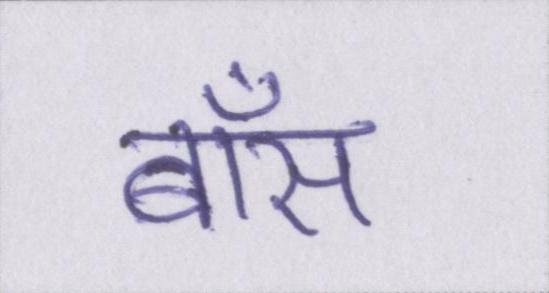 बाँस